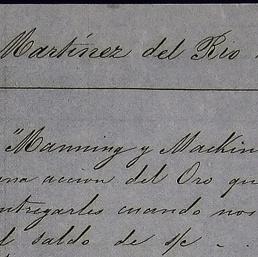 Martínez del Rio
"Manning y Mackin
una accion del Oro que
ntregarles cuando nos
l saldo de s/c